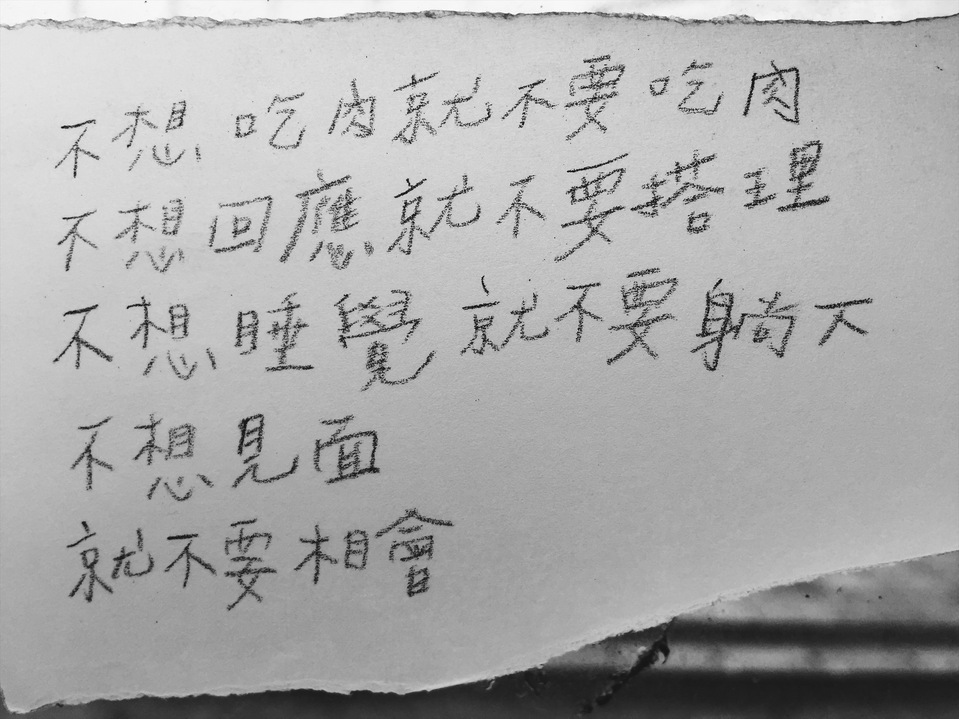 不想吃肉就不要吃肉
不想回應就不要搭理
不想睡覺就不要躺下
不想見面
就不要相會